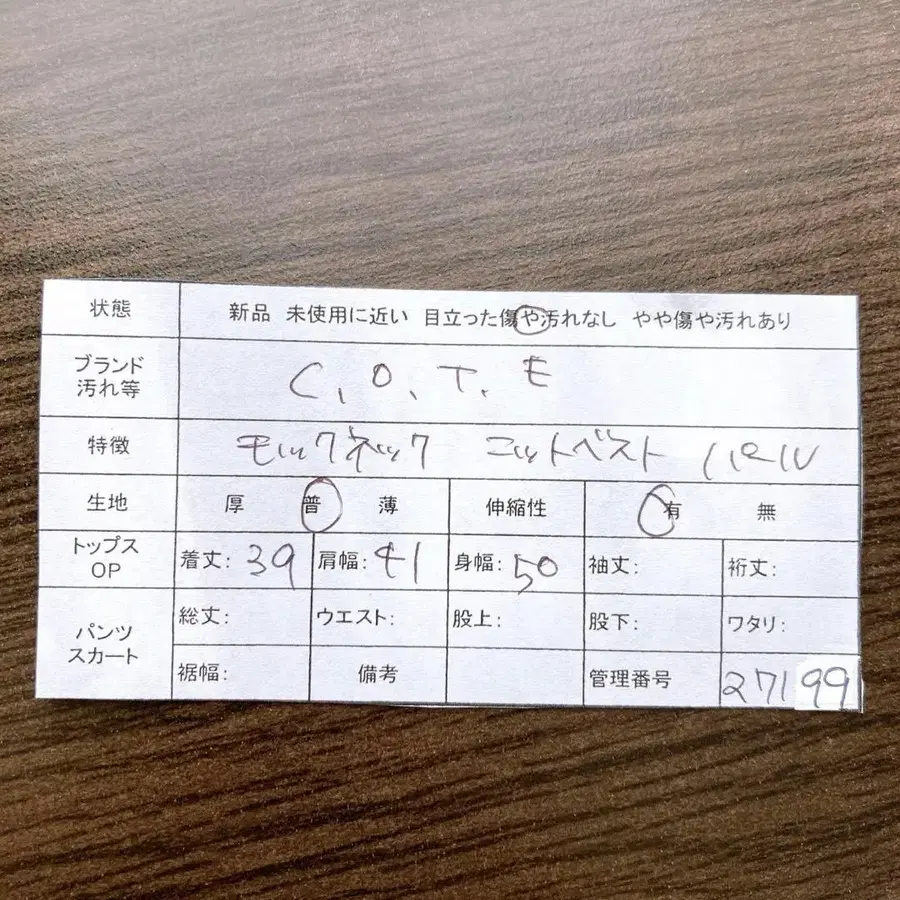 状態 新品 未使用に近い 目立った傷や汚れなし やや傷や汚れあり
ブランド
汚れ等 C、O、T、E
特徴 モックネック ニットベスト パール
生地 厚 普 薄 伸縮性 有 無
トップス
OP 着丈: 39 肩幅: 41 身幅: 50 袖丈: 裄丈:
パンツ
スカート 総丈: ウエスト: 股上: 股下: ワタリ:
裾幅: 備考 管理番号 27199